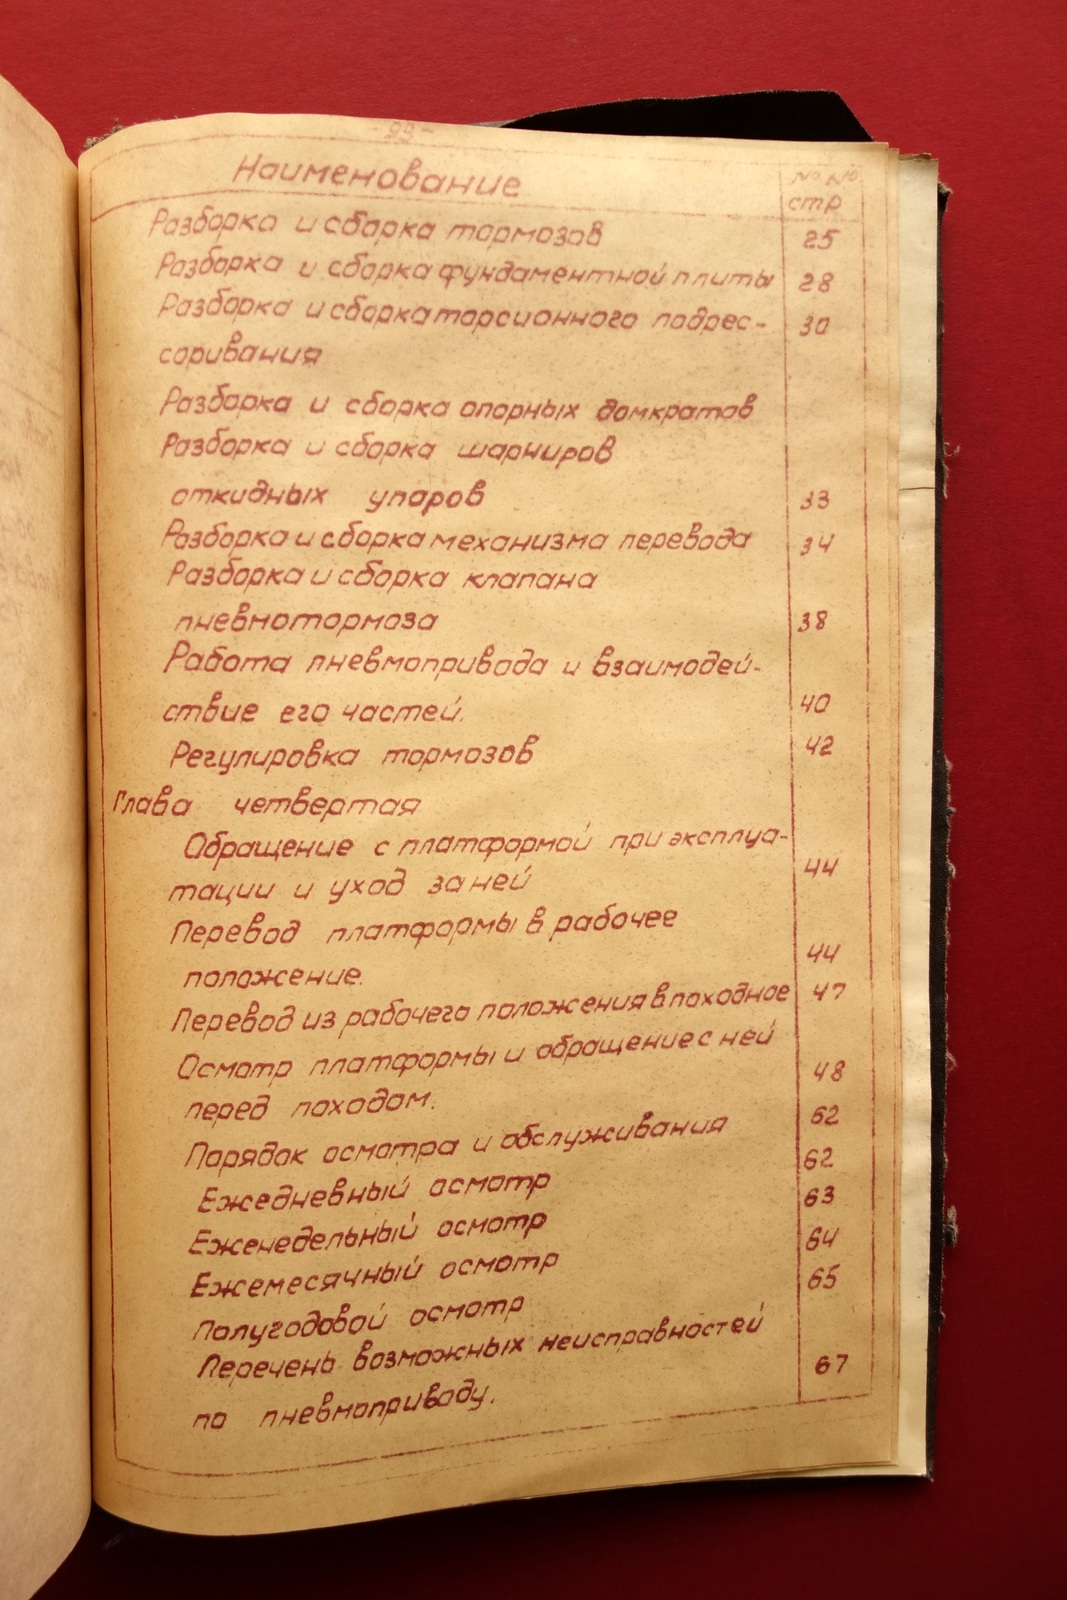 - 99 -
Наименование
№ №
стр
Разборка и сборка тормозов 25
Разборка и сборка фундаментной плиты 28
Разборка и сборка торсионного подрес- 30
соривания
Разборка и сборка опорных домкратов
Разборка и сборка шарниров
откидных упаров 33
Разборка и сборка механизма перевода 34
Разборка и сборка клапана
пневмотормоза 38
Работа пневмопривода и взаимодей-
ствие его частей. 40
Регулировка тормозов 42
Глава четвертая
Обращение с платформой при эксплуа-
тации и уход за ней 44
Перевод платформы в рабочее
положение. 44
Перевод из рабочего положения в походное 47
Осмотр платформы и обращение с ней
перед походом. 48
Порядок осмотра и обслуживания 62
Ежедневный осмотр 62
Еженедельный осмотр 63
Ежемесячный осмотр 64
Полугодовой осмотр 65
Перечень возможных неисправностей
по пневмоприводу. 67